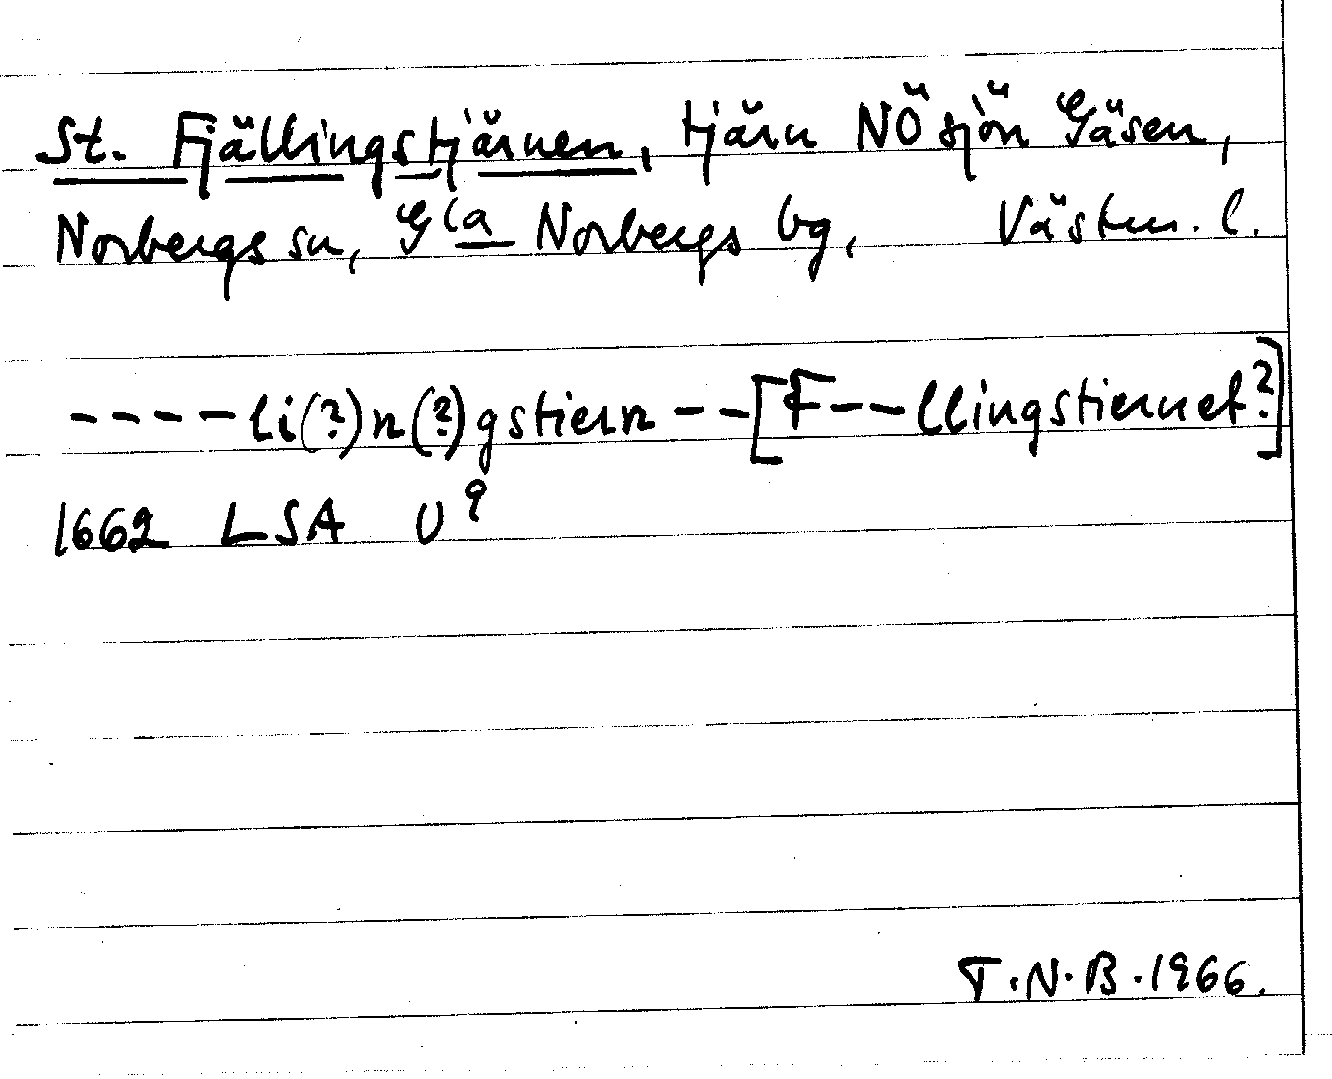 St. Fjällingstjärnen, tjärn NÖ sjön Gäsen,
Norbergs sn, Gla Norbergs bg, Västm. l.
----li(?)n(?)gstiern--[F--llingstiernet?]
1662 LSA U9
T.N.B.1966.